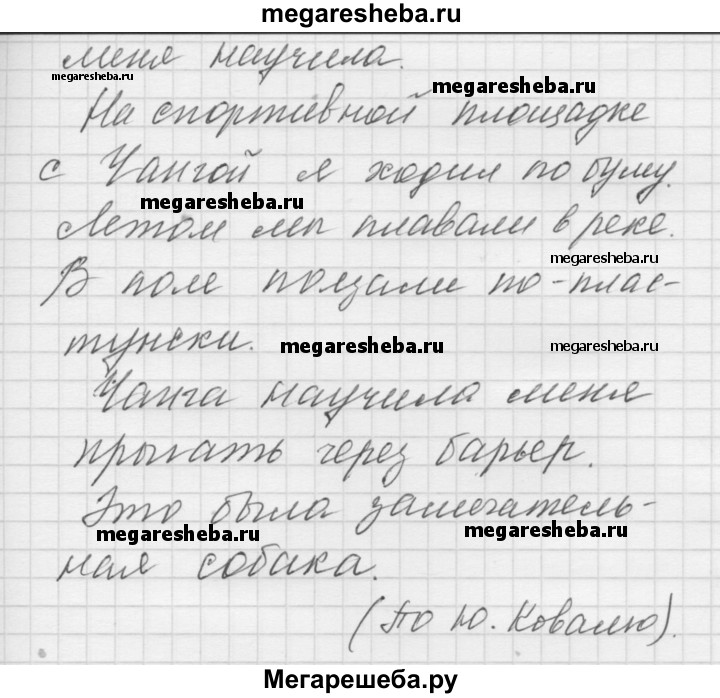 megaresheba.ru
меня научила.
megaresheba.ru
megaresheba.ru
На спортивной площадке
с Чангой я ходил по буму.
megaresheba.ru
Летом мы плавали в реке.
megaresheba.ru
В поле ползали по-плас-
тунски.
megaresheba.ru
megaresheba.ru
Чанга научила меня
прыгать через барьер.
Это была замечатель-
megaresheba.ru
megaresheba.ru
ная собака.
(По Ю. Ковалю).
Мегарешеба.ру